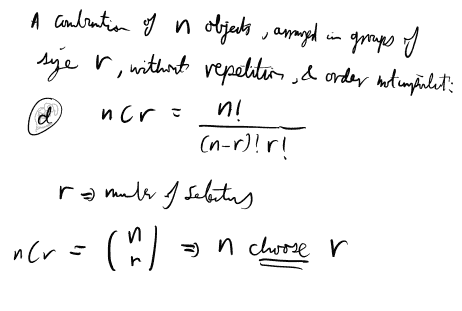 A combination of n objects, arranged in groups of
size r, without repetition, & order not important:
(d) nCr = n! / (n-r)! r!
r ⇒ number of selections
nCr = (n r) ⇒ n choose r